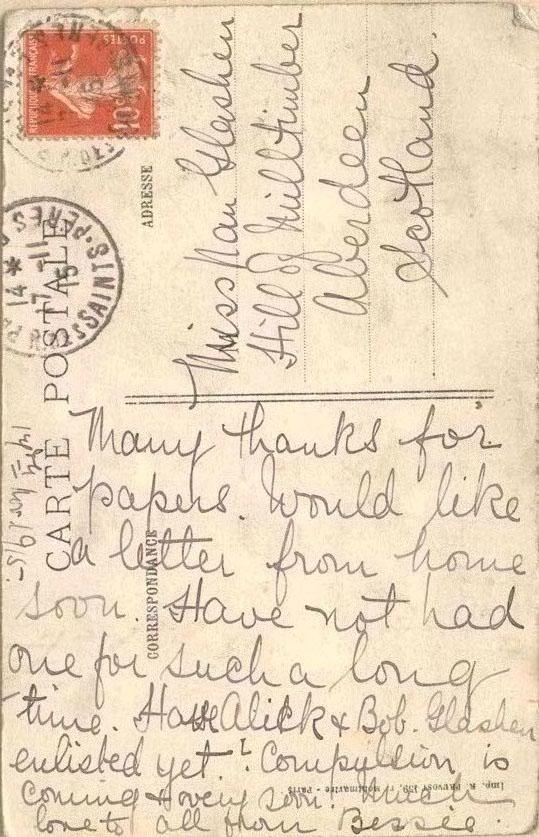 CARTE POSTALE
ADRESSE
CORRESPONDANCE
REPUBLIQUE FRANÇAISE
POSTES
10
14 *
7 - 11
15
SAINTS-PÈRES
Miss Nan Glashen
Hill of Milltimber
Aberdeen
Scotland.
Many thanks for
papers. Would like
a letter from home
soon. Have not had
one for such a long
time. Have Alick & Bob. Glashen
enlisted yet? Compulsion is
coming & very soon. Much
love to all from Bessie.
Imp. E. PRUVOST 159, r. Montmartre - PARIS